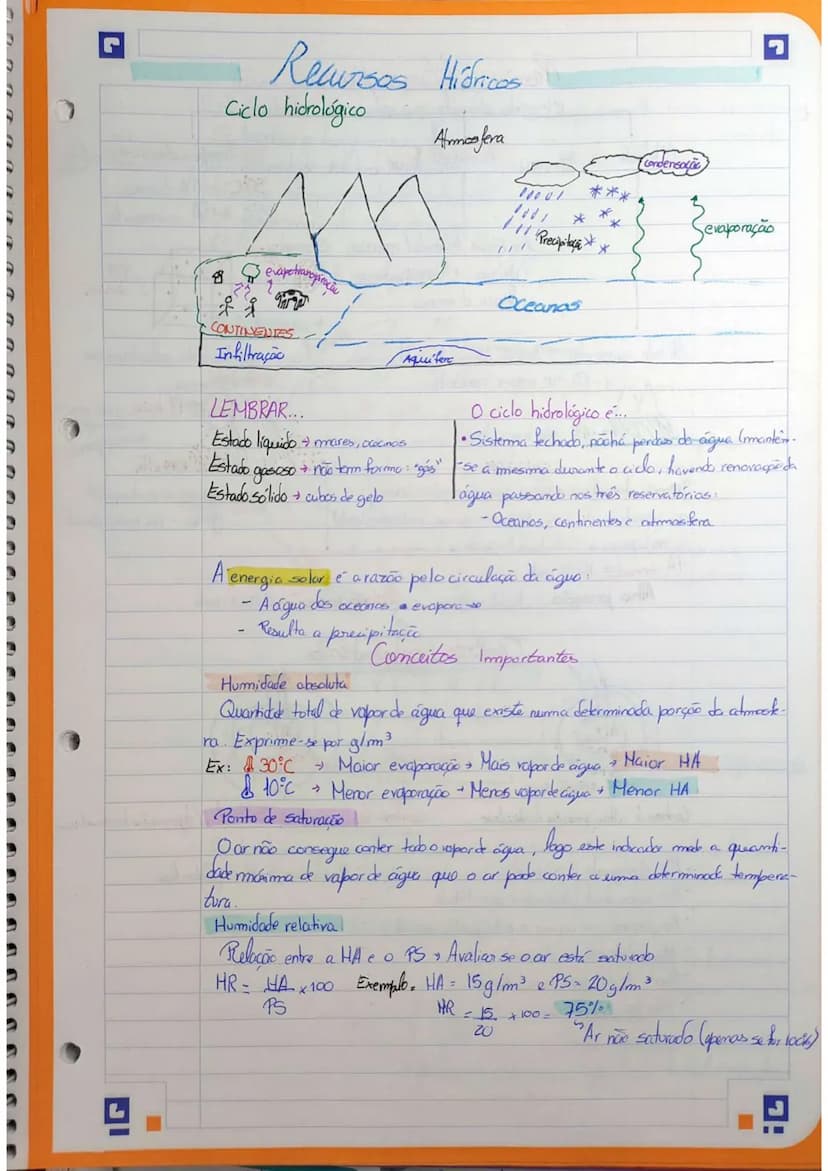 Recursos Hídricos
Ciclo hidrológico
Atmosfera
condensação
Precipitação
evaporação
evapotranspiração
Oceanos
CONTINENTES
Infiltração
Aquífero
LEMBRAR...
Estado líquido → mares, oceanos
Estado gasoso → não tem forma: "gás"
Estado sólido → cubos de gelo
O ciclo hidrológico é...
• Sistema fechado, não há perdas de água (mantém-
-se a mesma durante o ciclo, havendo renovação da
água passando nos três reservatórios:
- Oceanos, continentes e atmosfera
A energia solar é a razão pelo circulação da água:
- A água dos oceanos evapora
- Resulta a precipitação
Conceitos Importantes
Humidade absoluta
Quantidade total de vapor de água que existe numa determinada porção da atmosfe-
ra. Exprime-se por g/m³
Ex: 30°C → Maior evaporação → Mais vapor de água → Maior HA
10°C → Menor evaporação → Menos vapor de água → Menor HA
Ponto de saturação
O ar não consegue conter todo o vapor de água, logo este indicador mede a quanti-
dade máxima de vapor de água que o ar pode conter a uma determinada tempera-
tura.
Humidade relativa
Relação entre a HA e o PS → Avaliar se o ar está saturado
HR = HA/PS × 100 Exemplo. HA = 15g/m³ e PS = 20g/m³
HR = 15/20 × 100 = 75%
↳ Ar não saturado (apenas se for 100%)